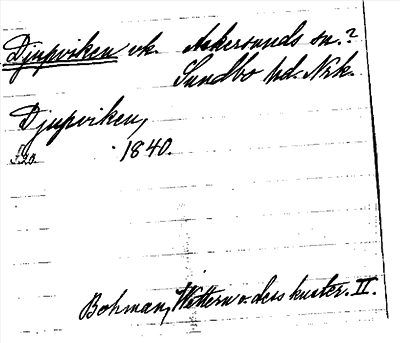 Djupviken vk. Askersunds sn.?
Sundbo hd. Nrk.
Djupviken,
s. 30. 1840.
Bohman, Wettern o. dess kuster. II.